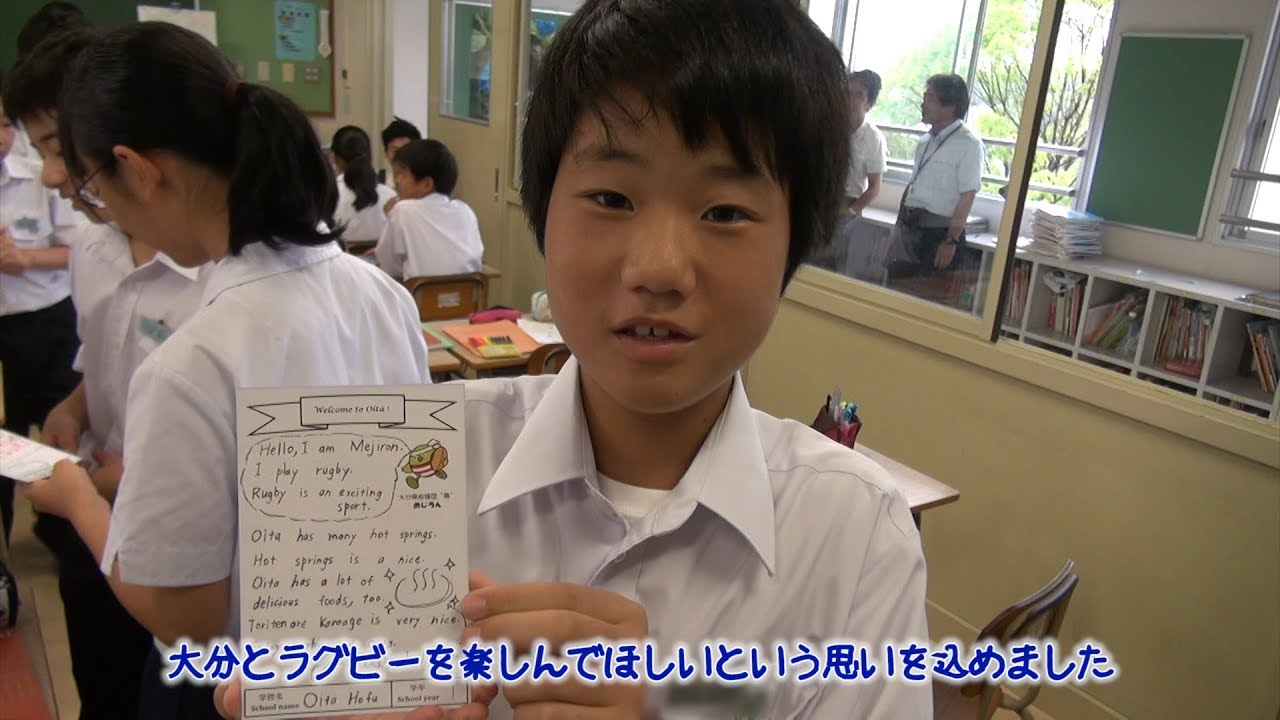 Welcome to Oita!
Hello, I am Mejiron.
I play rugby.
Rugby is an exciting
sport.
大分県応援団"鳥"
めじろん
Oita has many hot springs.
Hot springs is a nice.
Oita has a lot of
delicious foods, too.
Toriten and Karaage is very nice.
大分とラグビーを楽しんでほしいという思いを込めました
学校名
School name
Oita Hofu
学年
School year
1